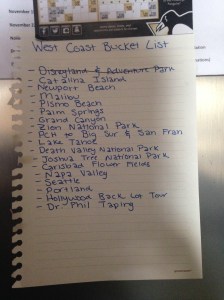 November
West Coast Bucket List
- Disneyland & Adventure Park
- Catalina Island
- Newport Beach
- Malibu
- Pismo Beach
- Palm Springs
- Grand Canyon
- Zion National Park
- PCH to Big Sur & San Fran
- Lake Tahoe
- Death Valley National Park
- Joshua Tree National Park
- Carlsbad Flower Fields
- Napa Valley
- Seattle
- Portland
- Hollywood Back Lot Tour
- Dr. Phil Taping